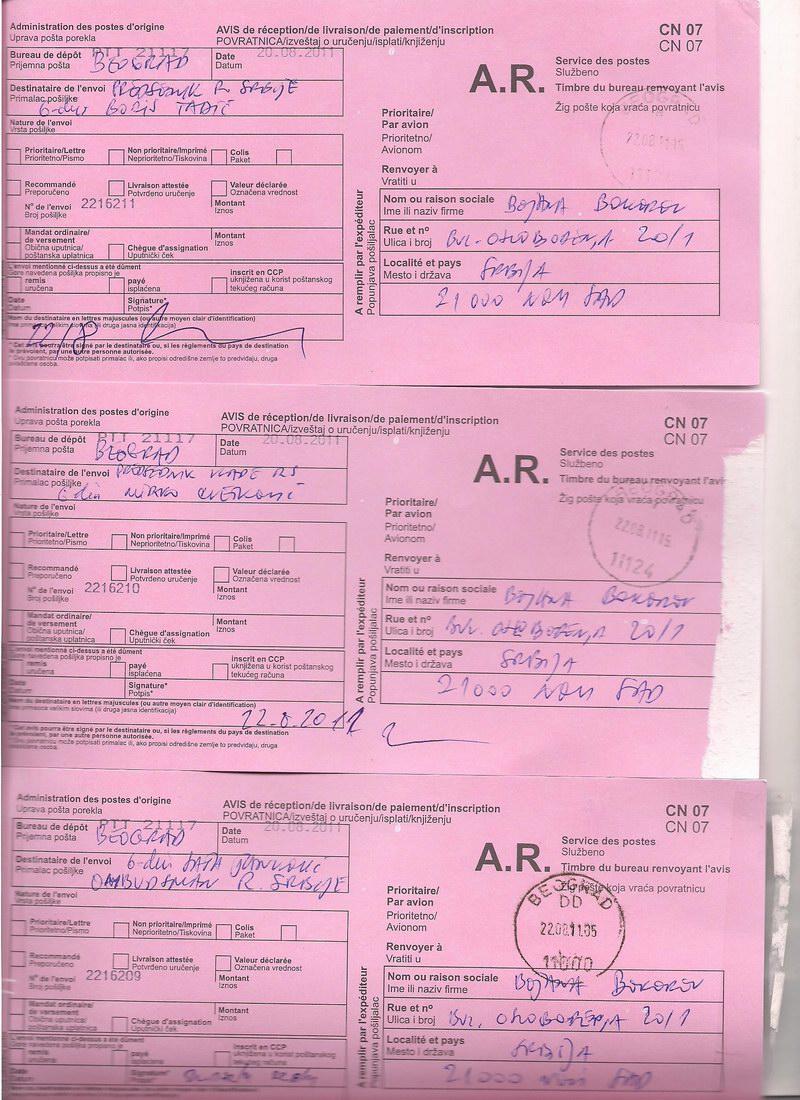 Administration des postes d'origine
Uprava pošta porekla
AVIS de réception/de livraison/de paiement/d'inscription
POVRATNICA/izveštaj o uručenju/isplati/knjiženju
CN 07
CN 07
Bureau de dépôt PTT 21117
Prijemna pošta BEOGRAD
Date 20.08.2011
Datum
A.R.
Service des postes
Službeno
Timbre du bureau renvoyant l'avis
Žig pošte koja vraća povratnicu
Destinataire de l'envoi PREDSEDNIK R. SRBIJE
Primalac pošiljke G-din BORIS TADIĆ
Nature de l'envoi
Vrsta pošiljke
Prioritaire/Lettre
Prioritetno/Pismo
Non prioritaire/Imprimé
Neprioritetno/Tiskovina
Colis
Paket
Prioritaire/
Par avion
Prioritetno/
Avionom
22.08.11.15
Recommandé
Preporučeno
Livraison attestée
Potvrđeno uručenje
Valeur déclarée
Označena vrednost
Renvoyer à
Vratiti u
N° de l'envoi 2216211
Broj pošiljke
Montant
Iznos
Nom ou raison sociale BOJANA BOKOROV
Ime ili naziv firme
Mandat ordinaire/
de versement
Obična uputnica/
poštanska uplatnica
Chèque d'assignation
Uputnički ček
Montant
Iznos
Rue et n° BUL. OSLOBOĐENJA 20/1
Ulica i broj
L'envoi mentionné ci-dessus a été dûment
Gore navedena pošiljka propisno je
remis
uručena
payé
isplaćena
inscrit en CCP
uknjižena u korist poštanskog
tekućeg računa
Localité et pays SRBIJA
Mesto i država
21000 NOVI SAD
A remplir par l'expéditeur
Popunjava pošiljalac
Date
Datum
Signature*
Potpis*
Nom du destinataire en lettres majuscules (ou autre moyen clair d'identification)
22/8
* Cet avis pourra être signé par le destinataire ou, si les règlements du pays de destination
le prévoient, par une autre personne autorisée.
* Ovu povratnicu može potpisati primalac ili, ako propisi odredišne zemlje to predviđaju, druga
ovlašćena osoba.
Administration des postes d'origine
Uprava pošta porekla
AVIS de réception/de livraison/de paiement/d'inscription
POVRATNICA/izveštaj o uručenju/isplati/knjiženju
CN 07
CN 07
Bureau de dépôt PTT 21117
Prijemna pošta BEOGRAD
Date 20.08.2011
Datum
A.R.
Service des postes
Službeno
Timbre du bureau renvoyant l'avis
Žig pošte koja vraća povratnicu
Destinataire de l'envoi PREDSEDNIK VLADE RS
Primalac pošiljke G-din MIRKO CVETKOVIĆ
Nature de l'envoi
Vrsta pošiljke
Prioritaire/Lettre
Prioritetno/Pismo
Non prioritaire/Imprimé
Neprioritetno/Tiskovina
Colis
Paket
Prioritaire/
Par avion
Prioritetno/
Avionom
22.08.11.15
11124
Recommandé
Preporučeno
Livraison attestée
Potvrđeno uručenje
Valeur déclarée
Označena vrednost
Renvoyer à
Vratiti u
N° de l'envoi 2216210
Broj pošiljke
Montant
Iznos
Nom ou raison sociale BOJANA BOKOROV
Ime ili naziv firme
Mandat ordinaire/
de versement
Obična uputnica/
poštanska uplatnica
Chèque d'assignation
Uputnički ček
Montant
Iznos
Rue et n° BUL. OSLOBOĐENJA 20/1
Ulica i broj
L'envoi mentionné ci-dessus a été dûment
Gore navedena pošiljka propisno je
remis
uručena
payé
isplaćena
inscrit en CCP
uknjižena u korist poštanskog
tekućeg računa
Localité et pays SRBIJA
Mesto i država
21000 NOVI SAD
A remplir par l'expéditeur
Popunjava pošiljalac
Date
Datum
Signature*
Potpis*
Nom du destinataire en lettres majuscules (ou autre moyen clair d'identification)
Ime primaoca velikim slovima (ili druga jasna identifikacija)
22.8.2011
* Cet avis pourra être signé par le destinataire ou, si les règlements du pays de destination
le prévoient, par une autre personne autorisée.
* Ovu povratnicu može potpisati primalac ili, ako propisi odredišne zemlje to predviđaju, druga
ovlašćena osoba.
Administration des postes d'origine
Uprava pošta porekla
AVIS de réception/de livraison/de paiement/d'inscription
POVRATNICA/izveštaj o uručenju/isplati/knjiženju
CN 07
CN 07
Bureau de dépôt PTT 21117
Prijemna pošta BEOGRAD
Date 20.08.2011
Datum
A.R.
Service des postes
Službeno
Timbre du bureau renvoyant l'avis
Žig pošte koja vraća povratnicu
Destinataire de l'envoi G-din SAŠA JANKOVIĆ
Primalac pošiljke OMBUDSMAN R. SRBIJE
Nature de l'envoi
Vrsta pošiljke
Prioritaire/Lettre
Prioritetno/Pismo
Non prioritaire/Imprimé
Neprioritetno/Tiskovina
Colis
Paket
Prioritaire/
Par avion
Prioritetno/
Avionom
BEOGRAD
DD
22.08.11.05
11000
Recommandé
Preporučeno
Livraison attestée
Potvrđeno uručenje
Valeur déclarée
Označena vrednost
Renvoyer à
Vratiti u
N° de l'envoi 2216209
Broj pošiljke
Montant
Iznos
Nom ou raison sociale BOJANA BOKOROV
Ime ili naziv firme
Mandat ordinaire/
de versement
Obična uputnica/
poštanska uplatnica
Chèque d'assignation
Uputnički ček
Montant
Iznos
Rue et n° BUL. OSLOBOĐENJA 20/1
Ulica i broj
L'envoi mentionné ci-dessus a été dûment
Gore navedena pošiljka propisno je
remis
uručena
payé
isplaćena
inscrit en CCP
uknjižena u korist poštanskog
tekućeg računa
Localité et pays SRBIJA
Mesto i država
21000 NOVI SAD
A remplir par l'expéditeur
Popunjava pošiljalac
Date
Datum
Signature*
Potpis*